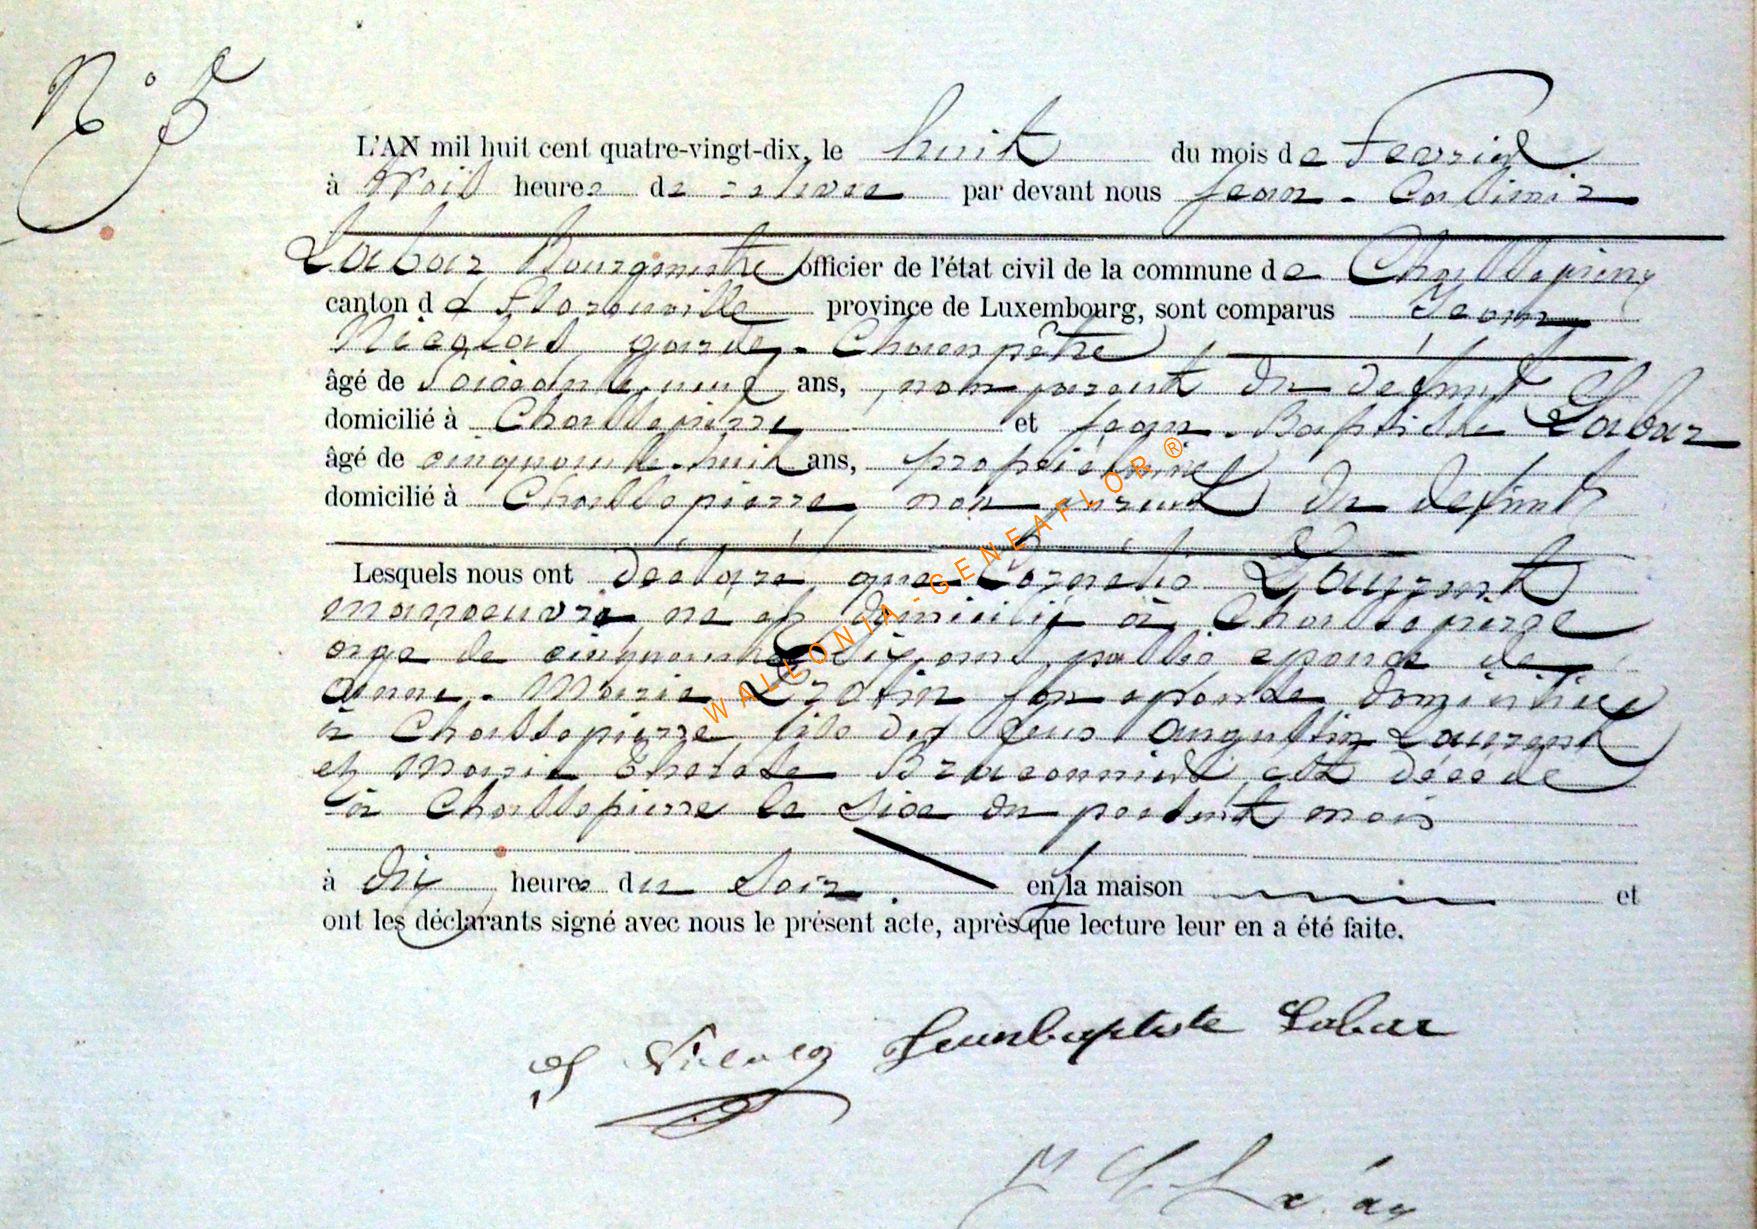 N° 5
L'AN mil huit cent quatre-vingt-dix, le huit du mois de Fevrier
à trois heures de relevee par devant nous Jean - Casimir
Labar Bourgmestre officier de l'état civil de la commune de Chassepierre
canton de Florenville province de Luxembourg, sont comparus Jean
Nicolas garde - Champêtre
âgé de Soixante neuf ans, non parent du defunt
domicilié à Chassepierre et Jean - Baptiste Labar
âgé de cinquante-huit ans, propriétaire
domicilié à Chassepierre, non parent du defunt
Lesquels nous ont déclaré que Laurent
manoeuvre né et domicilié à Chassepierre
age de cinquante six ans epoux de
Anne - Marie son epouse domiciliée
à Chassepierre, fils des feus Augustin Laurent
et Marie Therese Braconnier est décédé
à Chassepierre le Six du present mois
à dix heures du Soir. en la maison et
ont les déclarants signé avec nous le présent acte, après que lecture leur en a été faite.
J Nicolas Jeanbaptiste Labar
WALLONIA - GENEAFLOR ®